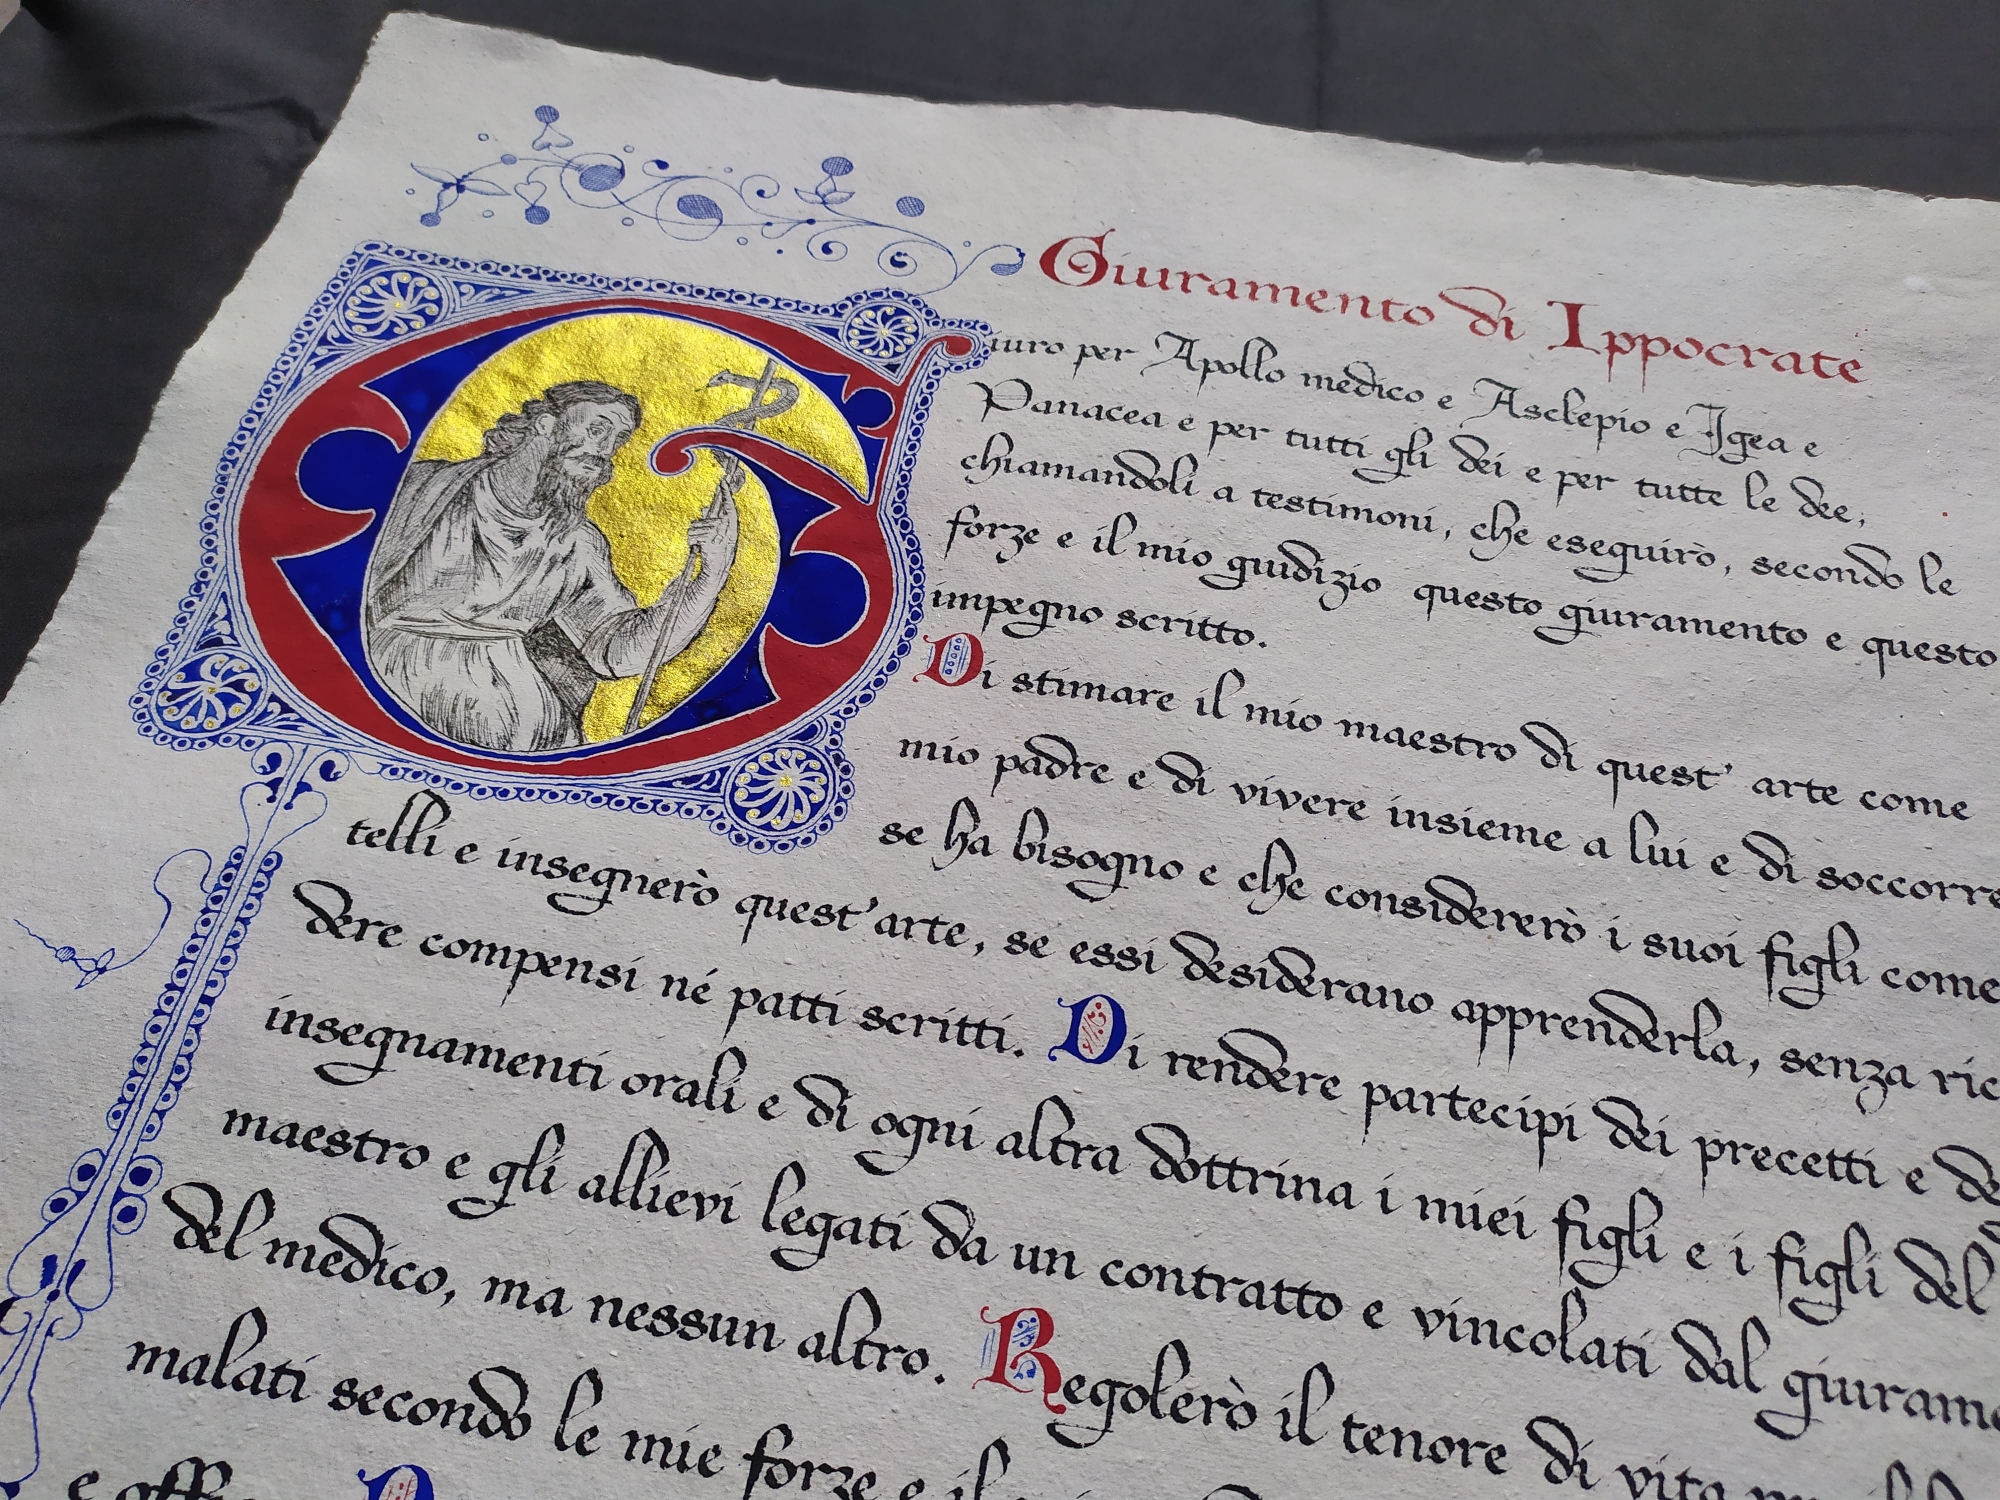 Giuramento di Ippocrate
Giuro per Apollo medico e Asclepio e Igea e
Panacea e per tutti gli dei e per tutte le dee,
chiamandoli a testimoni, che eseguirò, secondo le
forze e il mio giudizio questo giuramento e questo
impegno scritto.
Di stimare il mio maestro di quest' arte come
mio padre e di vivere insieme a lui e di soccorre
se ha bisogno e che considererò i suoi figli come
telli e insegnerò quest'arte, se essi desiderano apprenderla, senza ric
dere compensi né patti scritti. Di rendere partecipi dei precetti e de
insegnamenti orali e di ogni altra dottrina i miei figli e i figli del
maestro e gli allievi legati da un contratto e vincolati dal giurame
del medico, ma nessun altro. Regolerò il tenore di vita
malati secondo le mie forze e il
e